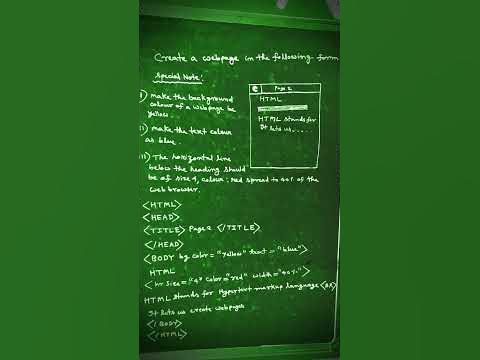 Create a webpage in the following form
Special Note:
i) make the background
colour of a webpage be
yellow.
ii) make the text colour
as blue.
iii) The horizontal line
below the heading should
be of size 4, colour: red spread to 40% of the
web browser.
e Page 2
HTML
HTML stands for
It lets us.....
<HTML>
<HEAD>
<TITLE> Page 2 </TITLE>
</HEAD>
<BODY bg color = "yellow" text = "blue">
HTML
<hr size="4" color="red" width="40%">
HTML stands for Hypertext markup language <BR>
It lets us create webpages
</BODY>
</HTML>